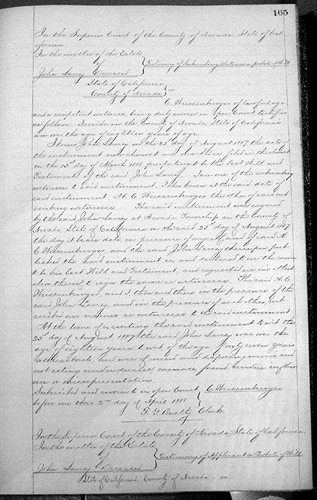 165
In the Superior Court of the County of Nevada State of Cal-
ifornia.
In the matter of the Estate
of
John Lancy Deceased
Testimony of Subscribing Witness on probate of Will
State of California
County of Nevada ss
C. Weissenburger of lawful age
and a competent witness, being duly sworn in open Court, testifies
as follows: I reside in the County of Nevada State of California
am over the age of eighteen years of age.
I knew John Lancy on the 25 day of August 1887 the date of
the instrument now shown to me
on the 15 day of March 1888, purporting to be the last Will and
Testament of the said John Lancy. I am one of the subscribing
witnesses to said instrument. I also knew at the said date of
said instrument H. C. Weissenburger the other sub-
scribing witness. The said instrument was signed
by the said John Lancy at Nevada Township in the County of
Nevada, State of California on the said 25 day of August 1887
the day it bears date in presence of myself and of said H.
C. Weissenburger, and the said John Lancy thereupon pub-
lished the said instrument as, and declared to us the same
to be his last Will and Testament, and requested us in attest-
ation thereof to sign the same as witnesses. The said H. C.
Weissenburger, and I then and there, in the presence of the
said John Lancy, and in the presence of each other, sub-
scribed our names as witnesses to the said instrument.
At the time of executing the said instrument to wit the
25 day of August 1887 the said John Lancy was over the
age of eighteen years to wit of the age of forty seven years
or thereabouts, and was of sound and disposing mind, and
not acting under duress, menace, fraud, undue influen-
ce or misrepresentation
Subscribed and sworn to in open Court C. Weissenburger
before me this 2nd day of April 1888
F. G. Beatty Clerk.
In the Superior Court of the County of Nevada, State of California.
In the matter of the Estate
of
John Lancy Deceased
Testimony of Applicant on Probate of Will
State of California County of Nevada ss